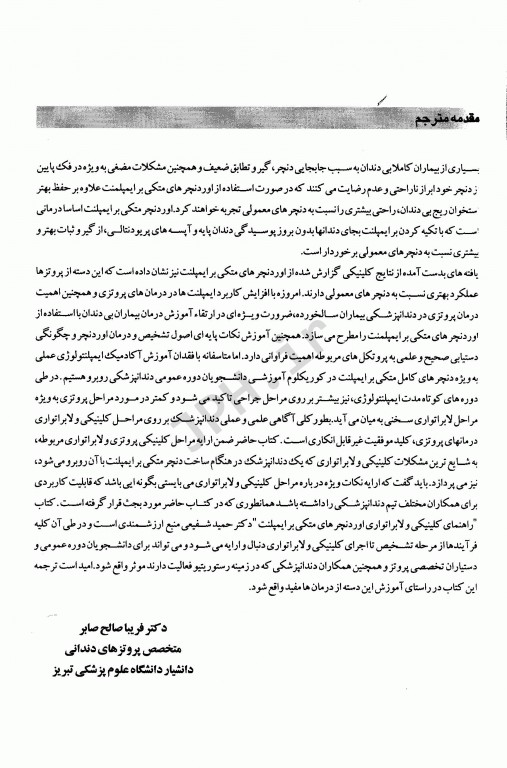 مقدمه مترجم
بسیاری از بیماران کاملا بی دندان به سبب جابجایی دنچر، گیر و تطابق ضعیف و همچنین مشکلات مضغی به ویژه در فک پایین
ز دنچر خود ابراز ناراحتی و عدم رضایت می کنند که در صورت استفاده از اوردنچر های متکی بر ایمپلمنت علاوه بر حفظ بهتر
ستخوان ریج بی دندان، راحتی بیشتری را نسبت به دنچر های معمولی تجربه خواهند کرد. اوردنچر متکی بر ایمپلنت اساسا درمانی
است که با تکیه کردن بر ایمپلنت بجای دندانها بدون بروز پوسیدگی دندان پایه و آپسه های پریودنتالی، از گیر و ثبات بهتر و
بیشتری نسبت به دنچر های معمولی برخوردار است.
یافته های بدست آمده از نتایج کلینیکی گزارش شده از اوردنچر های متکی بر ایمپلنت نیز نشان داده است که این دسته از پروتزها
عملکرد بهتری نسبت به دنچر های معمولی دارند. امروزه با افزایش کاربرد ایمپلنت ها در درمان های پروتزی و همچنین اهمیت
درمان پروتزی در دندانپزشکی بیماران سالخورده، ضرورت ویژه ای در ارتقاء آموزش درمان بیماران بی دندان با استفاده از
اوردنچر های متکی بر ایمپلمنت را مطرح می سازد. همچنین آموزش نکات پایه ای اصول تشخیص و درمان اوردنچر و چگونگی
دستیابی صحیح و علمی به پروتکل های مربوطه اهمیت فراوانی دارد. اما متاسفانه با فقدان آموزش آکادمیک ایمپلنتولوژی عملی
به ویژه دنچر های کامل متکی بر ایمپلنت در کوریکلوم آموزشی دانشجویان دوره عمومی دندانپزشکی روبرو هستیم. در طی
دوره های کوتاه مدت ایمپلنتولوژی، نیز بیشتر بر روی مراحل جراحی تاکید می شود و کمتر در مورد مراحل پروتزی به ویژه
مراحل لابراتواری سخنی به میان می آید. بطور کلی آگاهی علمی و عملی دندانپزشک بر روی مراحل کلینیکی و لابراتواری
درمانهای پروتزی، کلید موفقیت غیر قابل انکاری است. کتاب حاضر ضمن ارایه مراحل کلینیکی پروتزی و لابراتواری مربوطه،
به شایع ترین مشکلات کلینیکی و لابراتواری که یک دندانپزشک در هنگام ساخت دنچر متکی بر ایمپلنت با آن روبرو می شود،
نیز می پردازد. باید گفت که ارایه نکات ویژه در باره مراحل کلینیکی و لابراتواری می بایستی بگونه ایی باشد که قابلیت کاربردی
برای همکاران مختلف تیم دندانپزشکی را داشته باشد همانطوری که در کتاب حاضر مورد بحث قرار گرفته است. کتاب
"راهنمای کلینیکی و لابراتواری اوردنچر های متکی بر ایمپلنت" دکتر حمید شفیعی منبع ارزشمندی است و در طی آن کلیه
فرآیندها از مرحله تشخیص تا اجرای کلینیکی و لابراتواری دنبال و ارایه می شود و می تواند برای دانشجویان دوره عمومی و
دستیاران تخصصی پروتز و همچنین همکاران دندانپزشکی که در زمینه رستوریتیو فعالیت دارند موثر واقع شود. امید است ترجمه
این کتاب در راستای آموزش این دسته از درمان ها مفید واقع شود.
دکتر فریبا صالح صابر
متخصص پروتزهای دندانی
دانشیار دانشگاه علوم پزشکی تبریز